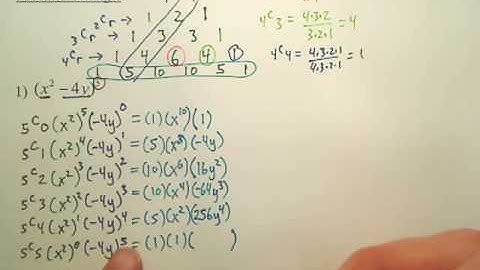 ₂Cr 1 2 1
₃Cr 1 3 3 1
₄Cr 1 4 6 4 1
1 5 10 10 5 1
₄C3 = 4·3·2 / 3·2·1 = 4
₄C4 = 4·3·2·1 / 4·3·2·1 = 1
1) (x² - 4y)⁵
₅C0 (x²)⁵ (-4y)⁰ = (1)(x¹⁰)(1)
₅C1 (x²)⁴ (-4y)¹ = (5)(x⁸)(-4y)
₅C2 (x²)³ (-4y)² = (10)(x⁶)(16y²)
₅C3 (x²)² (-4y)³ = (10)(x⁴)(-64y³)
₅C4 (x²)¹ (-4y)⁴ = (5)(x²)(256y⁴)
₅C5 (x²)⁰ (-4y)⁵ = (1)(1)( )